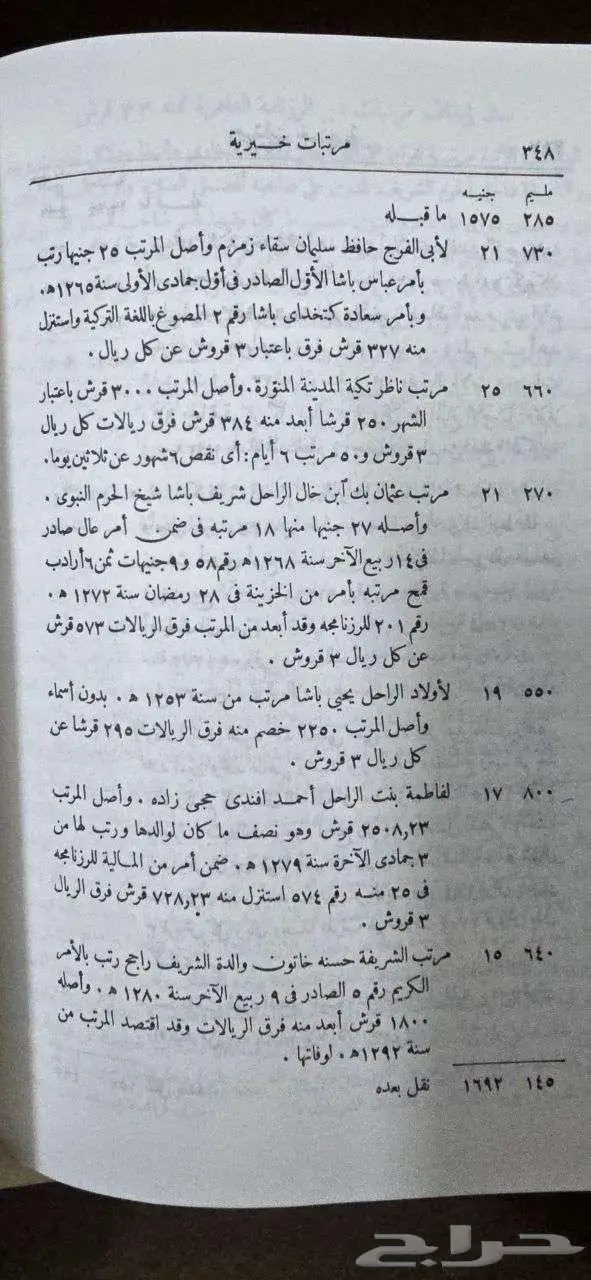 ٣٤٨ مرتبات خيرية
مليم جنيه
٢٨٥ ١٥٧٥ ما قبله
٧٣٠ ٢١ لأبى الفرج حافظ سليمان سقاء زمزم وأصل المرتب ٢٥ جنيها رتب
بأمر عباس باشا الأول الصادر فى أول جمادى الأولى سنة ١٢٦٥ هـ.
وبأمر سعادة كتخداى باشا رقم ٢ المصوغ باللغة التركية واستنزل
منه ٣٢٧ قرش فرق باعتبار ٣ قروش عن كل ريال .
٦٦٠ ٢٥ مرتب ناظر تكية المدينة المنورة. وأصل المرتب ٣٠٠٠ قرش باعتبار
الشهر ٢٥٠ قرشا أبعد منه ٣٨٤ قرش فرق ريالات كل ريال
٣ قروش و ٥٠ مرتب ٦ أيام : أى نقص ٦ شهور عن ثلاثين يوما.
٢٧٠ ٢١ مرتب عثمان بك آبن خال الراحل شريف باشا شيخ الحرم النبوى .
وأصله ٢٧ جنيها منها ١٨ مرتبه فى ضمن أمر عال صادر
فى ١٤ ربيع الآخر سنة ١٢٦٨ هـ رقم ٥٨ و ٩ جنيهات ثمن ٦ أرادب
قمح مرتبه بأمر من الخزينة فى ٢٨ رمضان سنة ١٢٧٢ هـ .
رقم ٢٠١ للرزنامجه وقد أبعد من المرتب فرق الريالات ٥٧٣ قرش
عن كل ريال ٣ قروش .
٥٥٠ ١٩ لأولاد الراحل يحيى باشا مرتب من سنة ١٢٥٣ هـ . بدون أسماء
وأصل المرتب ٢٢٥٠ خصم منه فرق الريالات ٢٩٥ قرشا عن
كل ريال ٣ قروش .
٨٠٠ ١٧ لفاطمة بنت الراحل أحمد افندى حجى زاده . وأصل المرتب
٢٥٠٨,٢٣ قرش وهو نصف ما كان لوالدها ورتب لها من
٣ جمادى الآخرة سنة ١٢٧٩ هـ . ضمن أمر من المالية للرزنامجه
فى ٢٥ منه رقم ٥٧٤ استنزل منه ٧٢٨,٢٣ قرش فرق الريال
٣ قروش .
٦٤٠ ١٥ مرتب الشريفة حسنه خاتون والدة الشريف راجح رتب بالأمر
الكريم رقم ٥ الصادر فى ٩ ربيع الآخر سنة ١٢٨٠ هـ . وأصله
١٨٠٠ قرش أبعد منه فرق الريالات وقد اقتصد المرتب من
سنة ١٢٩٢ هـ . لوفاتها .
١٤٥ ١٦٩٢ نقل بعده
حراج